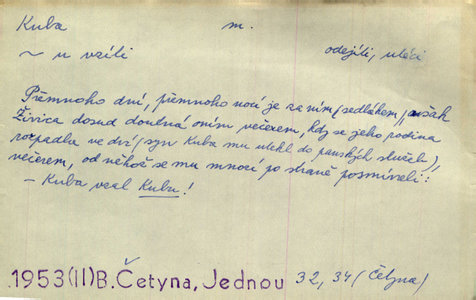 Kuba m.
~ u vzíti odejíti, utéci
Přemnoho dní, přemnoho nocí je za ním (sedlákem), avšak
Živica dosud doutná oním večerem, kdy se jeho rodina
rozpadla ve dví (syn Kuba mu utekl do panských služeb),
večerem, od něhož se mu mnozí po straně posmívali:
– Kuba vzal Kubu!
1953(II)B. Četyna, Jednou 32, 34 (Četyna)